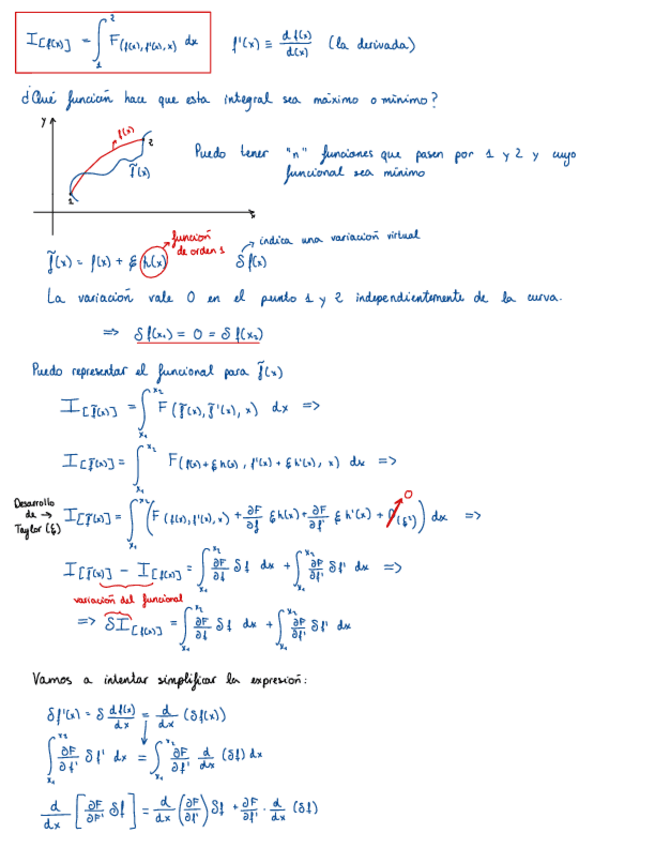 I[f(x)] = ∫₁² F(f(x), f'(x), x) dx    f'(x) ≡ d f(x)/d(x) (la derivada)
¿Qué función hace que esta integral sea máximo o mínimo?
y
f(x)
2
f̃(x)
1
x
Puedo tener "n" funciones que pasen por 1 y 2 y cuyo
funcional sea mínimo
función
de orden 1
indica una variación virtual
f̃(x) = f(x) + ξ h(x)    δf(x)
La variación vale 0 en el punto 1 y 2 independientemente de la curva.
=> δf(x₁) = 0 = δf(x₂)
Puedo representar el funcional para f̃(x)
I[f̃(x)] = ∫_{x₁}^{x₂} F(f̃(x), f̃'(x), x) dx =>
I[f̃(x)] = ∫_{x₁}^{x₂} F(f(x) + ξ h(x), f'(x) + ξ h'(x), x) dx =>
Desarrollo
de →
Taylor (ξ)
I[f̃(x)] = ∫_{x₁}^{x₂} (F(f(x), f'(x), x) + ∂F/∂f ξ h(x) + ∂F/∂f' ξ h'(x) + O(ξ²)) dx =>
0
I[f̃(x)] - I[f(x)] = ∫_{x₁}^{x₂} ∂F/∂f δf dx + ∫_{x₁}^{x₂} ∂F/∂f' δf' dx =>
variación del funcional
=> δI[f(x)] = ∫_{x₁}^{x₂} ∂F/∂f δf dx + ∫_{x₁}^{x₂} ∂F/∂f' δf' dx
Vamos a intentar simplificar la expresión:
δf'(x) = δ df(x)/dx = d/dx (δf(x))
∫_{x₁}^{x₂} ∂F/∂f' δf' dx = ∫_{x₁}^{x₂} ∂F/∂f' d/dx (δf) dx
d/dx [∂F/∂F' δf] = d/dx (∂F/∂f') δf + ∂F/∂f' · d/dx (δf)